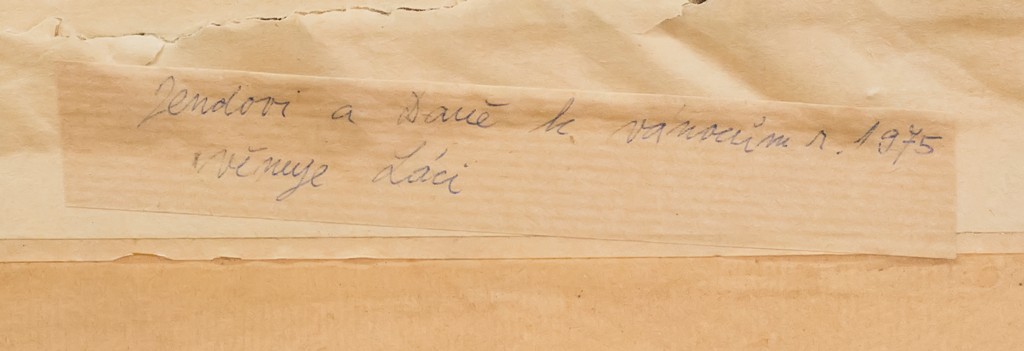 Jendovi a Daně k vánocům r. 1975
věnuje Láci